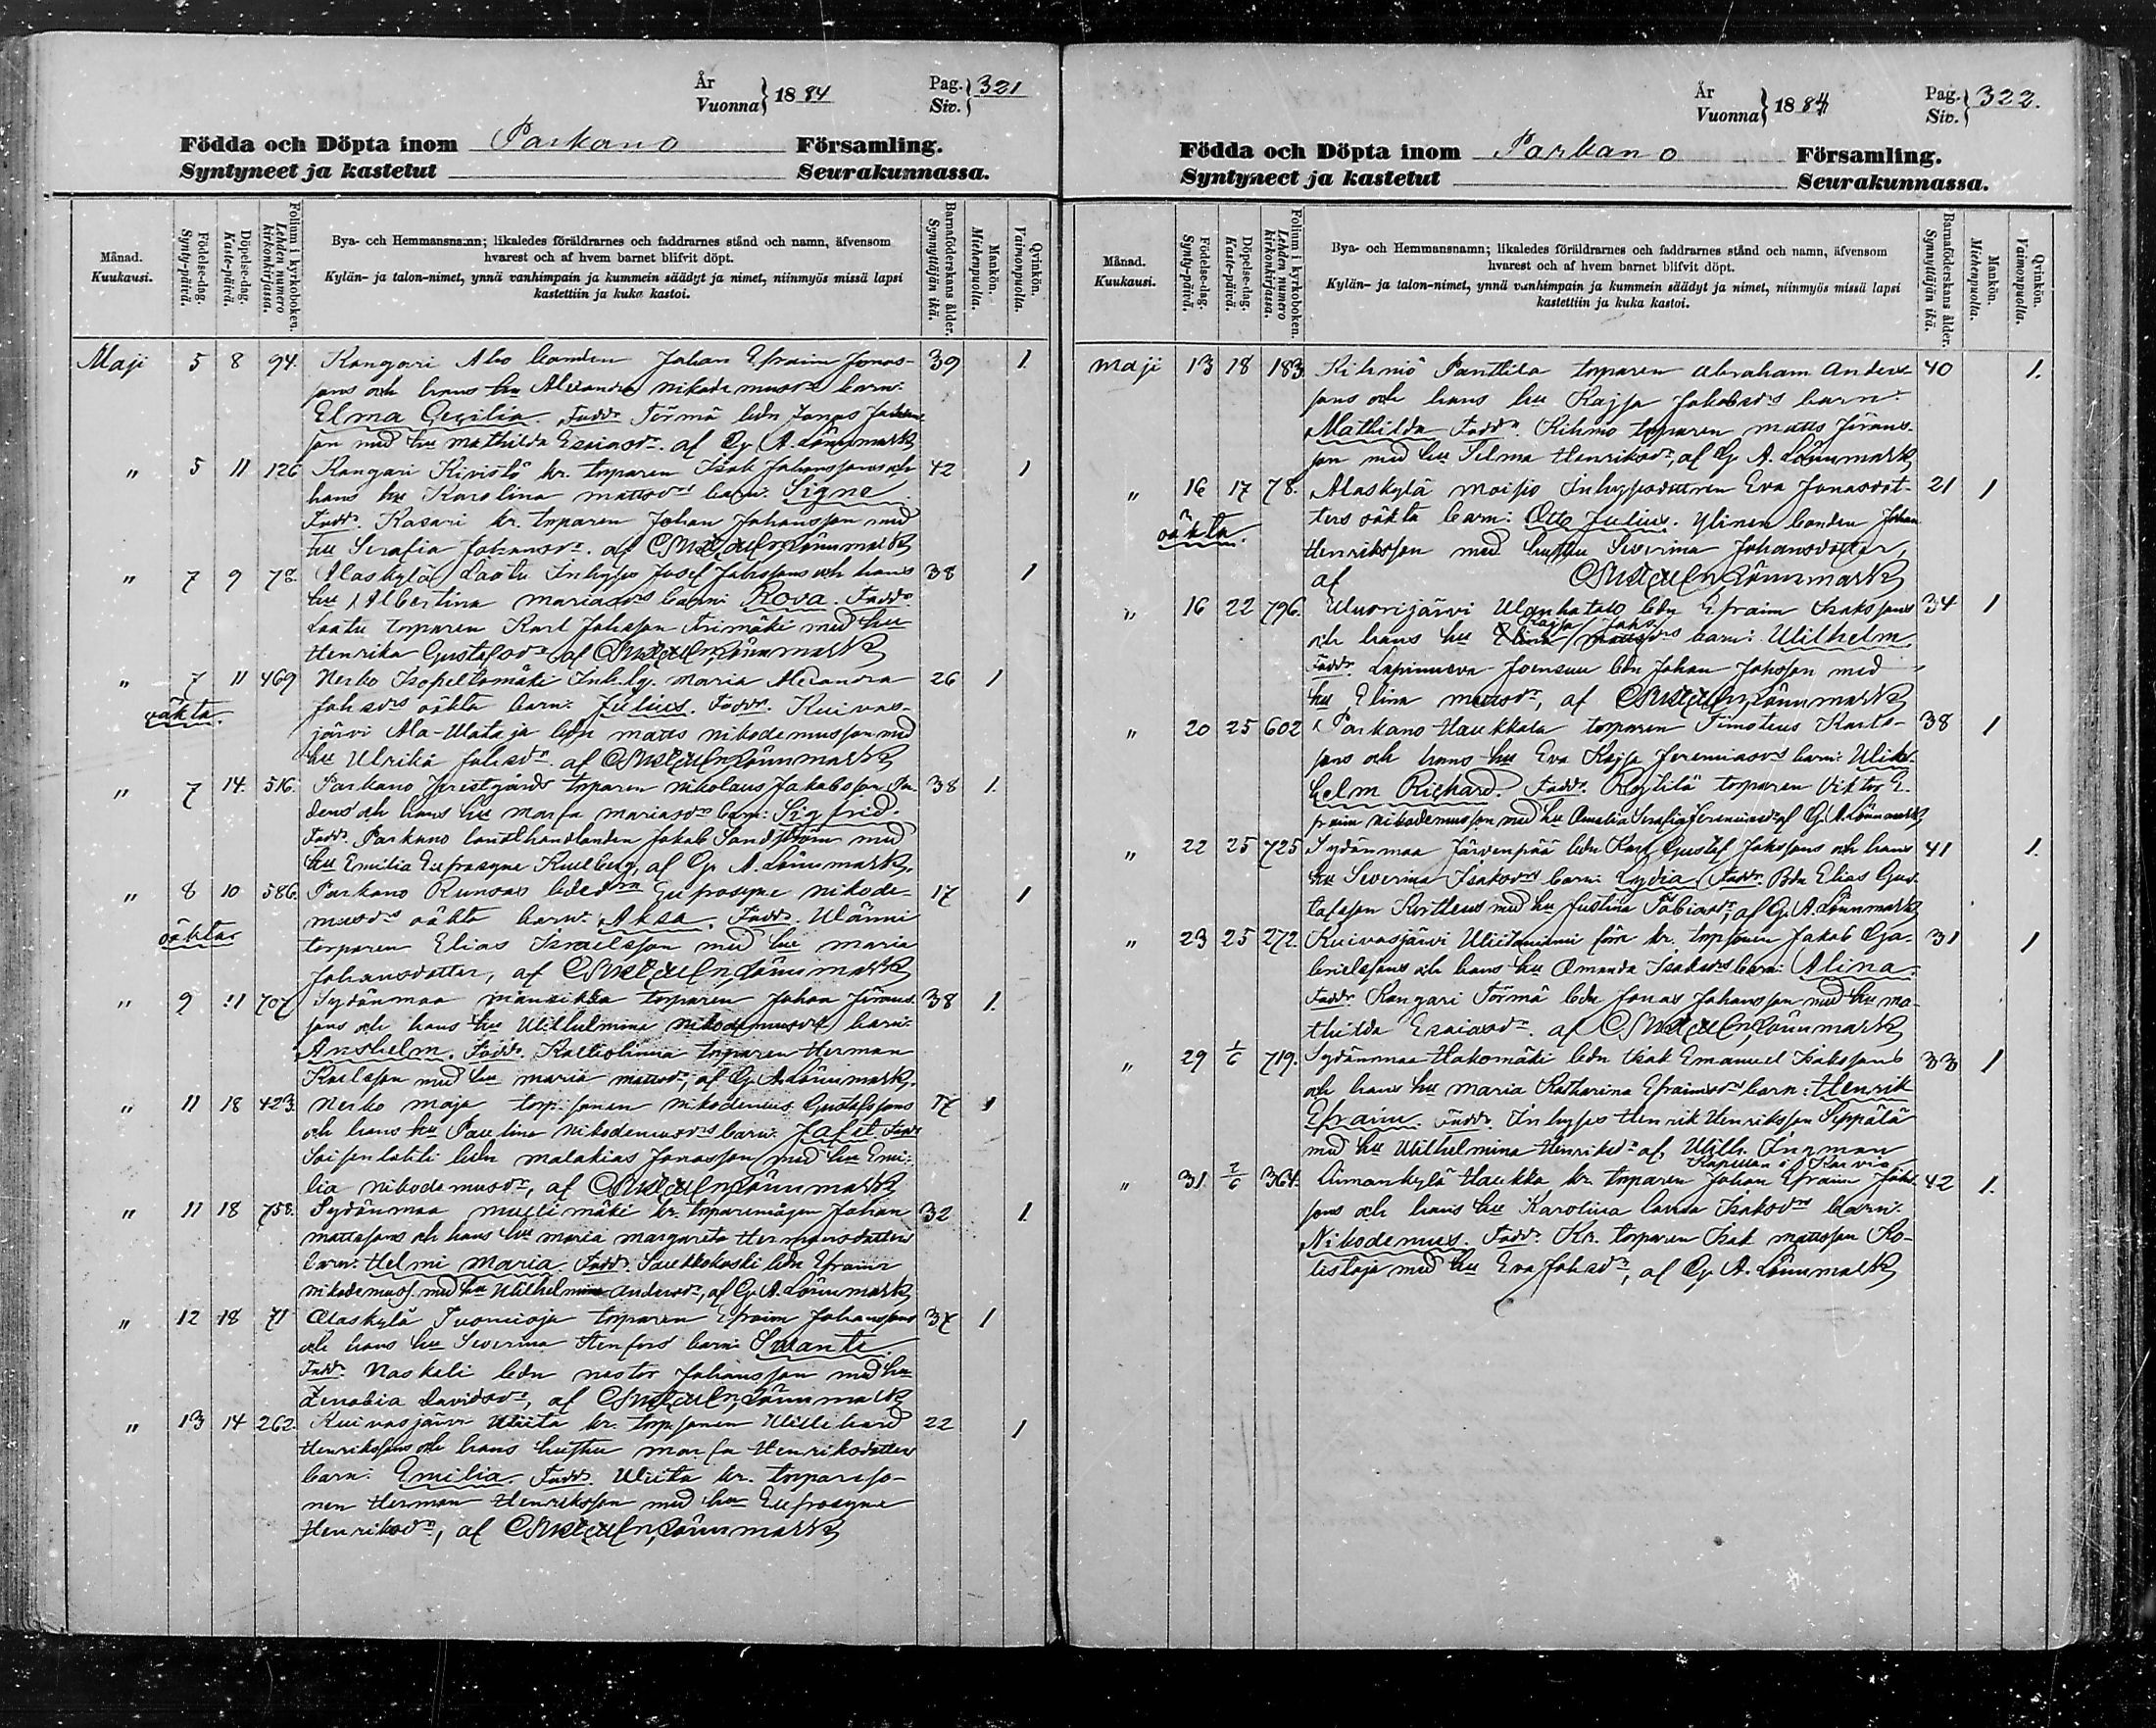 År
Vuonna } 1884
Pag.
Siv. } 321
Födda och Döpta inom Parkano Församling.
Syntyneet ja kastetut Seurakunnassa.
Månad.
Kuukausi.
Födelse-dag.
Synty-päivä.
Döpelse-dag.
Kaste-päivä.
Folium i kyrkoboken.
Lehden numero
kirkonkirjassa.
Bya- och Hemmansnamn; likaledes föräldrarnes och faddrarnes stånd och namn, äfvensom
hvarest och af hvem barnet blifvit döpt.
Kylän- ja talon-nimet, ynnä vanhimpain ja kummein säädyt ja nimet, niinmyös missä lapsi
kastettiin ja kuka kastoi.
Barnaföderskans ålder.
Synnyttäjän ikä.
Mankön.
Miehenpuolia.
Qvinkön.
Vaimonpuolia.
Maji 5 8 94. Kangari Aho bonden Johan Efraim Jonas- 39 1
sons och hans hu Alexandra Nikodemusds barn:
Elma Cecilia. Faddr Törmä bdn Jonas Johans-
son med hu Mathilda Esaiasdr. af Gg A. Lönnmark
" 5 11 126 Kangari Kivistö kr. torparen Isak Johanssons och 42 1
hans hu Karolina Mattsds barn: Signe
Faddr. Kasari kr. torparen Johan Johansson med
hu Serafia Johansdr. af Lönnmark
" 7 9 78. Alaskylä Laatu Inhyses Josef Johssons och hans 38 1
hu Albertina Mariasds barn: Rosa. Faddr.
Laatu torparen Karl Johsson med hu
Henrika Gustafsdr af Lönnmark
" 7 11 469 Nerko Isopeltomäki Inh. Maria Alexandra 26 1
oäkta.
Johsds oäkta barn: Julius. Faddr. Kuivas-
järvi Ala-Wataja bdn Matts Nikodemusson med
hu Ulrika Johsdr. af Lönnmark
" 7 14. 516. Parkano Prestgårds torparen Nikolaus Jakobsson 38 1.
och hans hu Marfa Mariasds barn: Sigfrid.
Faddr. Parkano landthandlanden Jakob Sandström med
hu Emilia Eufrosyne Kullberg, af Gg A. Lönnmark.
" 8 10 586. Parkano Runsas Eufrosyne Nikode- 17 1
oäkta
musds oäkta barn: Aksa. Faddr. Wänni
torparen Elias Israelsson med hu Maria
Johansdotter, af Lönnmark
" 9 11 707 Sydänmaa Mansikka torparen Johan 38 1.
sons och hans hu Wilhelmina Nikodemusds barn:
Anshelm. Faddr. torparen Herman
Karlsson med hu Maria Mattsdr, af Gg A. Lönnmark.
" 11 18 423. Nerko Maja torp. sonen Nikodemus Gustafssons 1
och hans hu Paulina Nikodemusds barn: Jafet Faddr
bdn Malakias Jonasson med hu Emi-
lia Nikodemusdr, af Lönnmark
" 11 18 758. Sydänmaa Myllimäki kr. torparemågen Johan 32 1.
Mattssons och hans hu Maria Margareta Hermansdotters
barn: Helmi Maria. Faddr. Saukkokoski bdn Efraim
Nikodemuss. med hu Wilhelmina Andersdr, af Gg A. Lönnmark
" 12 18 71 Alaskylä Tuomioja torparen Efraim Johanssons 37 1
och hans hu Severina Stenfors barn: Swante.
Faddr. Naskali bdn Nestor Johansson med hu
Zenobia Davidsdr, af Lönnmark
" 13 14 262. Kuivasjärvi Wiita kr. torp. sonen Willehard 22 1
Henrikssons och hans hustru Marfa Henriksdotters
barn: Emilia. Faddr. Wiita kr. torpareso-
nen Herman Henriksson med hu Eufrosyne
Henriksdr, af Lönnmark
År
Vuonna } 1884
Pag.
Siv. } 322.
Födda och Döpta inom Parkano Församling.
Syntyneet ja kastetut Seurakunnassa.
Månad.
Kuukausi.
Födelse-dag.
Synty-päivä.
Döpelse-dag.
Kaste-päivä.
Folium i kyrkoboken.
Lehden numero
kirkonkirjassa.
Bya- och Hemmansnamn; likaledes föräldrarnes och faddrarnes stånd och namn, äfvensom
hvarest och af hvem barnet blifvit döpt.
Kylän- ja talon-nimet, ynnä vanhimpain ja kummein säädyt ja nimet, niinmyös missä lapsi
kastettiin ja kuka kastoi.
Barnaföderskans ålder.
Synnyttäjän ikä.
Mankön.
Miehenpuolia.
Qvinkön.
Vaimonpuolia.
Maji 13 18 183 Kihniö Panttila torparen Abraham Anders- 40 1.
sons och hans hu Kajsa Jakobsds barn:
Mathilda Faddr. Kihniö torparen Matts Jörans-
son med hu Selma Henriksdr, af Gg A. Lönnmark
" 16 17 78. Alaskylä Moisio Inhysesdottren Eva Jonasdot- 21 1
oäkta.
ters oäkta barn: Otto Julius. Ylinen bonden Johan
Henriksson med hustru Severina Johansdotter,
af Lönnmark
" 16 22 796. Wuorijärvi Ulanhatalo bdn Efraim Isakssons 34 1
Kajsa Johs
och hans hu Elina Mattsds barn: Wilhelm
Faddr. Lapinneva Joensuu bdn Johan Johsson med
hu Elina Mattsdr, af Lönnmark
" 20 25 602 Parkano Haukkala torparen Timoteus Karls- 38 1
sons och hans hu Eva Kajsa Jeremiasds barn: Wil-
helm Richard. Faddr. torparen Viktor E-
fraim Nikodemusson med hu Amalia Serafia Jeremiasdr af Gg A. Lönnmark
" 22 25 725 Sydänmaa Järvenpää bdn Karl Gustaf Johssons och hans 41 1.
hu Severina Isaksds barn: Lydia. Faddr. Bdn Elias Gus-
tafsson med hu Justina Tobiasdr, af Gg A. Lönnmark
" 23 25 272. Kuivasjärvi Wiitaniemi kr. torpsonen Jakob Ga- 31 1
brielssons och hans hu Amanda Isaksds barn: Alina.
Faddr. Kangari Törmä bdn Jonas Johansson med hu Ma-
thilda Esaiasdr. af Lönnmark
" 29 1/6 719. Sydänmaa Hakomäki bdn Isak Emanuel Isakssons 33 1
och hans hu Maria Katharina Efraimsds barn: Henrik
Efraim. Faddr. Inhyses Henrik Henriksson Seppälä
med hu Wilhelmina Henriksdr af, Wilh. Ingman
Kapellan i Karvia
" 31. 2/6 364. Linnankylä Haukka kr. torparen Johan Efraim Johs- 42 1.
sons och hans hu Karolina Isaksds barn:
Nikodemus. Faddr. Kr. torparen Isak Mattsson Ko-
listaja med hu Eva Johsdr, af Gg A. Lönnmark